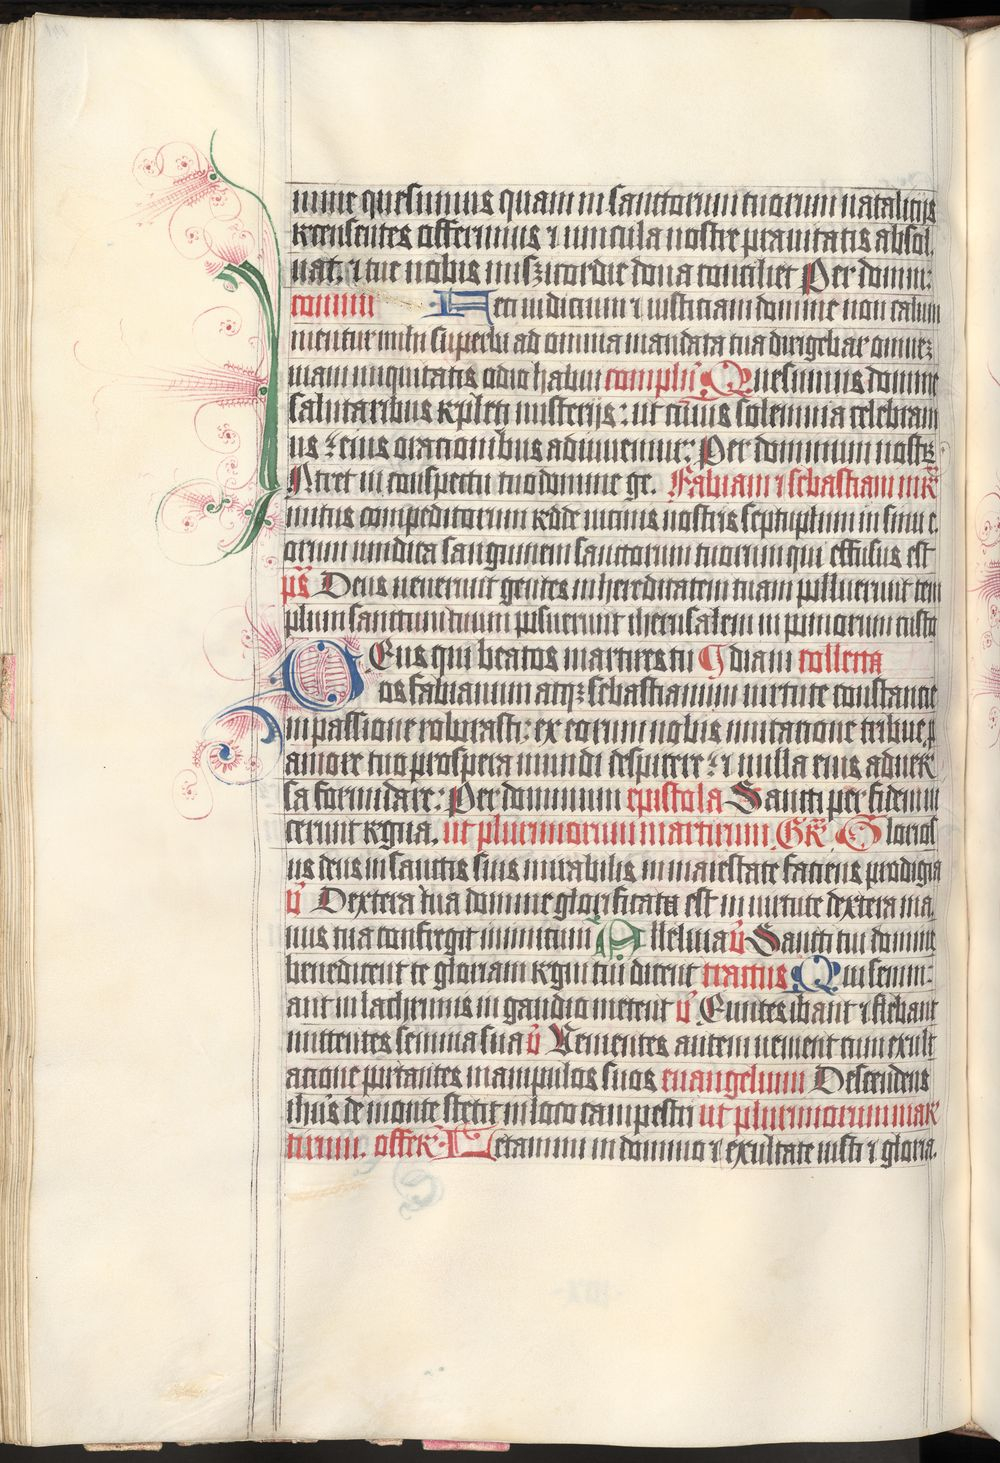 mine quesumus quam in sanctorum tuorum natalicijs
recensentes offerimus ⁊ vincula nostre prauitatis absol,
uat. ⁊ tue nobis misericordie dona conciliet Per domin:
commu Feci iudicium ⁊ iusticiam domine non calum
nientur mihi superbi ad omnia mandata tua dirigebar omnē
uiam iniquitatis odio habui complēn Quesumus domine
salutaribus repleti misterijs: ut cuius solemnia celebram
us eius orationibus adiuuemur: Per dominum nostrū
Intret in conspectu tuo domine ge. Fabiani ⁊ sebastiani mr̄
mitus compeditorum redde uicinis nostris septuplum in sinu e.
orum uindica sanguinem sanctorum tuorum qui effusus est
ps̄ Deus uenerunt gentes in hereditatem tuam polluerunt tem
plum sanctum tuum posuerunt iherusalem in pomorum custo
Deus qui beatos martires tu diam collecta
os fabianum atq; sebastianum uirtute constancie
in passione roborasti: ex eorum nobis imitatione tribue, p
amore tuo prospera mundi despicere: ⁊ nulla eius aduer
sa formidare: Per dominum epistola Sancti per fidem ui
cerunt regna. ut plurimorum martirum. Gr̄ Glorios
us deus in sanctis suis mirabilis in maiestate faciens prodigia
v̄ Dextera tua domine glorificata est in uirtute dextera ma,
nus tua confregit inimicum Alleluia v̄ Sancti tui domine
benedicent te gloriam regni tui dicent tractus Qui semin:
ant in lachrimis in gaudio metent v̄ Euntes ibant ⁊ flebant
mittentes semina sua v̄ Venientes autem uenient cum exult
atione portantes manipulos suos euangelium Descendens
ihūs de monte stetit in loco campestri ut plurimorum mar
tirum. offer Letamini in domino ⁊ exultate iusti ⁊ gloria.